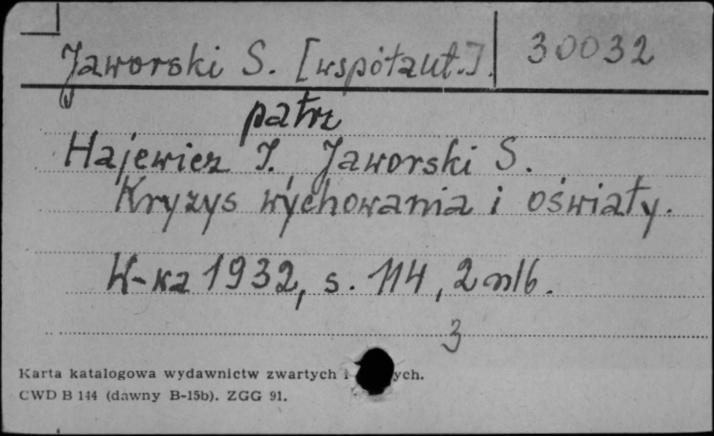 Jaworski S. [współaut.]. 30032
patrz
Hajewicz I. Jaworski S.
Kryzys wychowania i oświaty.
W-wa 1932, s. 114, 2 nlb.
3
Karta katalogowa wydawnictw zwartych i ych.
CWD B 144 (dawny B-15b). ZGG 91.